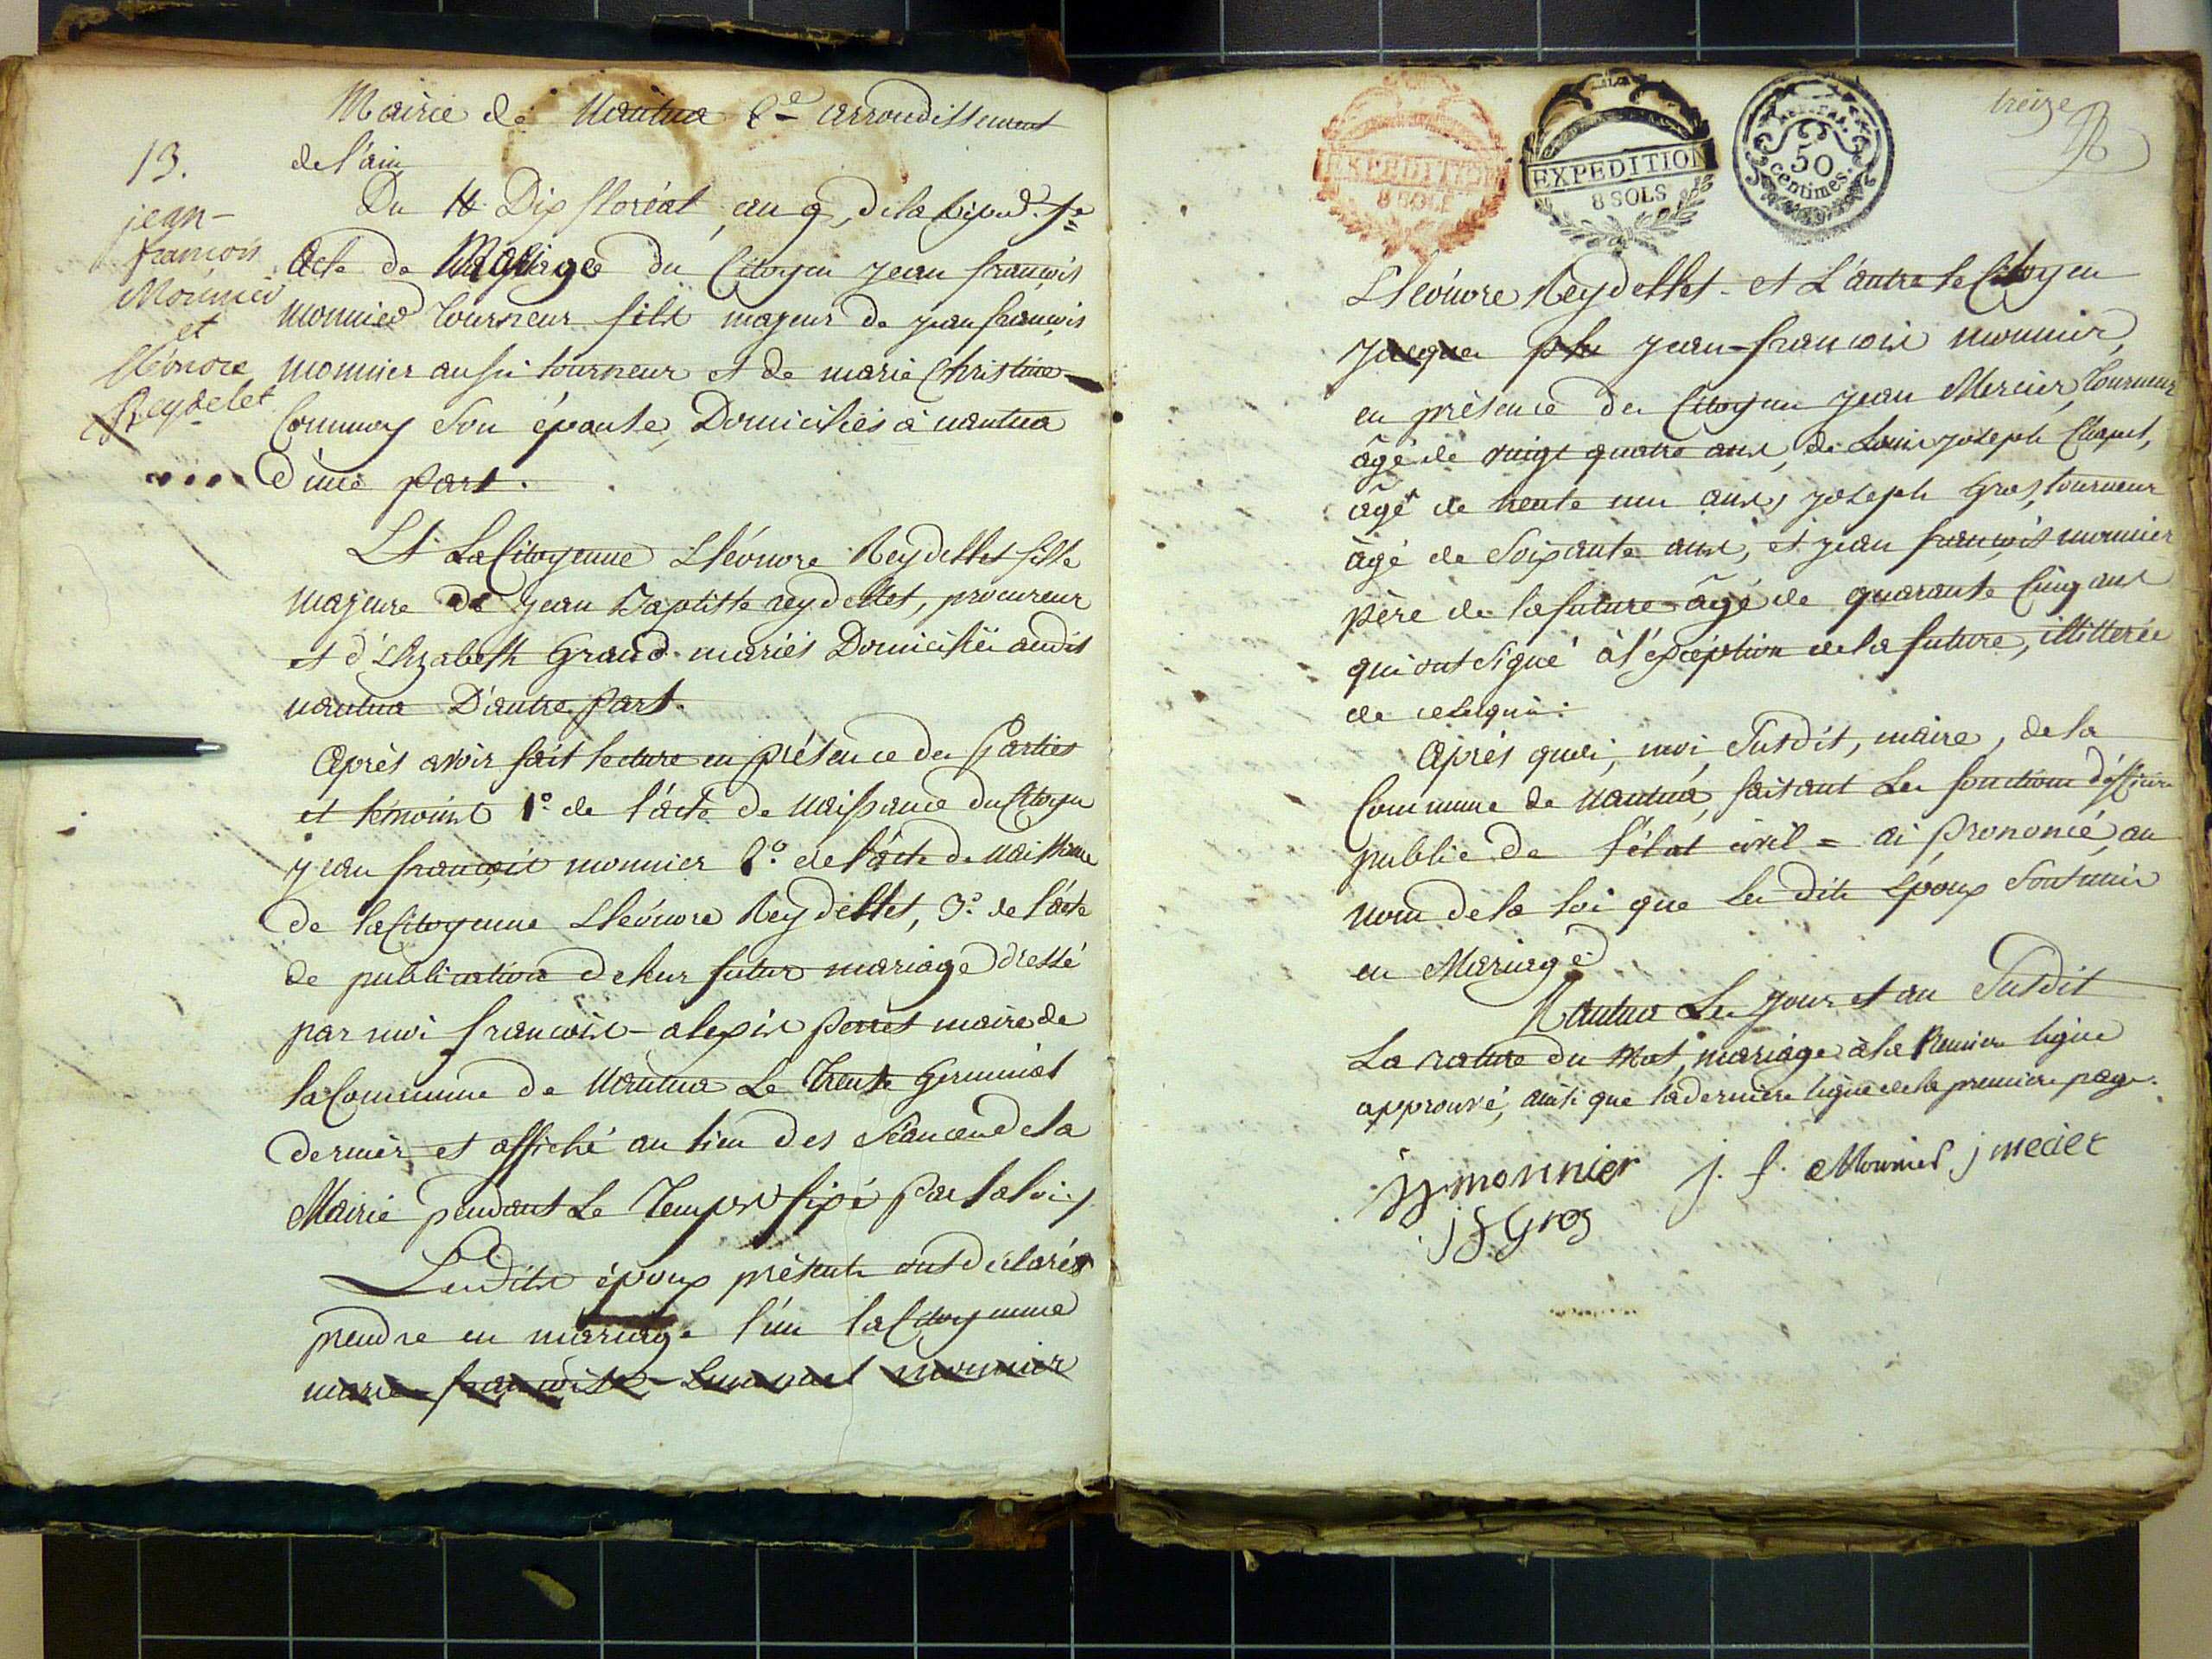 Mairie de Nantua 2e arrondissement
de l'ain
13.
jean-
francois
Monnier
et
Eléonore
Reydelet
Du Dix floréal, an 9, de la
Acte de Mariage du Citoyen jean françois
monnier tourneur fils majeur de jean françois
monnier aussi tourneur et de marie Christine
son épouse, Domiciliés à nantua
d'une part.
Et La Citoyenne Eléonore Reydellet fille
majeure de jean Baptiste reydellet, procureur
et d'Elizabeth Grand mariés Domicilié audit
nantua D'autre part.
Après avoir fait lecture en présence des Parties
et témoins 1o. de l'acte de naissance du Citoyen
jean françois monnier 2o. de l'acte de naissance
de la Citoyenne Eléonore Reydellet, 3o. de l'acte
de publication de leur futur mariage dressé
par moi francois-alexis perret maire de
la Commune de Nantua Le trente Germinal
dernier et affiché au lieu des séances de la
Mairie pendant Le temps fixé par la loi
Lesdits époux présents ont declarés
prendre en mariage l'un la Citoyenne
marie francoise monnier
treize
EXPEDITION
8 SOLS
EXPEDITION
8 SOLS
50
centimes.
Eléonore Reydellet et L'autre le Citoyen
jacques jean-francois monnier,
en présence des Citoyens jean Mercier, tourneur
âgé de vingt quatre ans, de Louis joseph Chapel,
âgé de trente un ans, joseph Gros, tourneur
âgé de soixante ans, et jean françois monnier
père de la future âgé de quarante cinq ans
qui ont signé à l'exception de la future, illitterée
de ce requise.
Après quoi, moi, susdit, maire, de la
Commune de Nantua, faisant les fonctions d'officier
public de l'état civil = ai prononcé, au
nom de la loi que les dits époux sont unis
en Mariage
Nantua Les jour et an susdit
La rature du mot, mariage à la Premiere ligne
approuvé, ainsi que la derniere ligne de la premiere page.
jf monnier j. f. Monnier j mecier
j f Gros